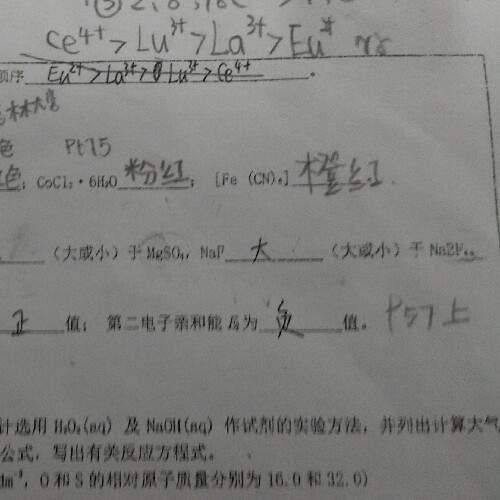 ③ 2, 8, 18
Ce⁴⁺>Lu³⁺>La³⁺>Eu²⁺
顺序 Eu²⁺>La³⁺>Lu³⁺>Ce⁴⁺。
色 P175
色; CoCl₂·6H₂O 粉红; [Fe (CN)₆] 橙红
(大或小) 于 MgSO₄, NaF 大 (大或小) 于
正 值; 第二电子亲和能 E 为 负 值。 P57上
计选用 H₂O₂(aq) 及 NaOH(aq) 作试剂的实验方法, 并列出计算大气
公式, 写出有关反应方程式。
dm⁻³, O 和 S 的相对原子质量分别为 16.0 和 32.0)